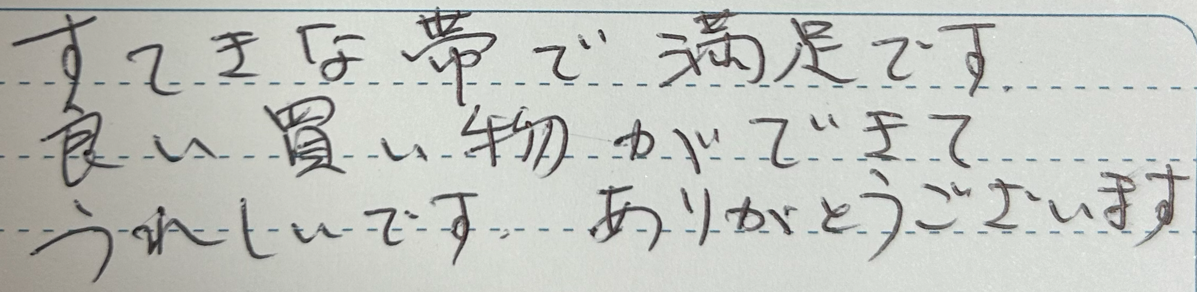 すてきな帯で満足です.
良い買い物ができて
うれしいです. ありがとうございます